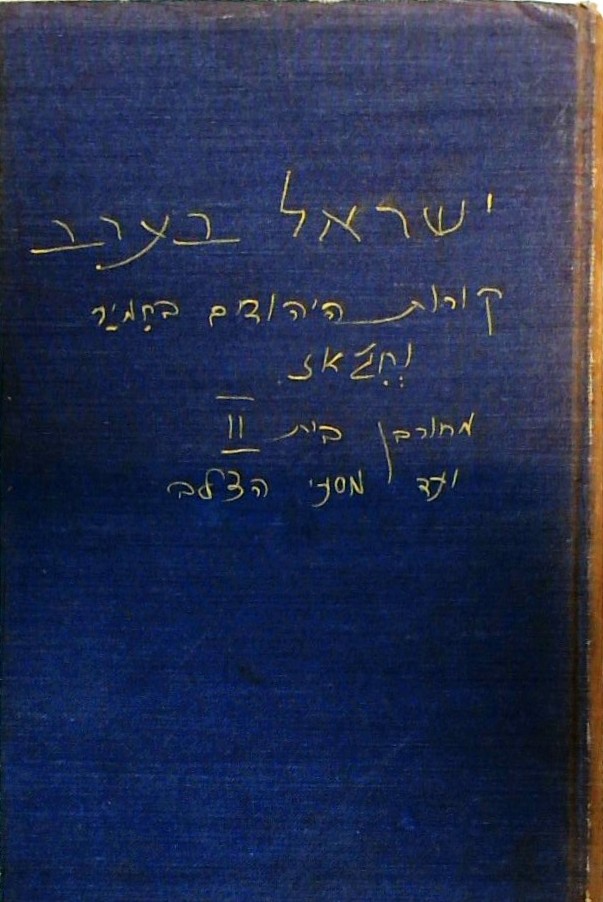 ישראל בערב
קורות היהודים בחִמְיַר
וְחִגַ'אז
מחורבן בית II
ועד מסעי הצלב